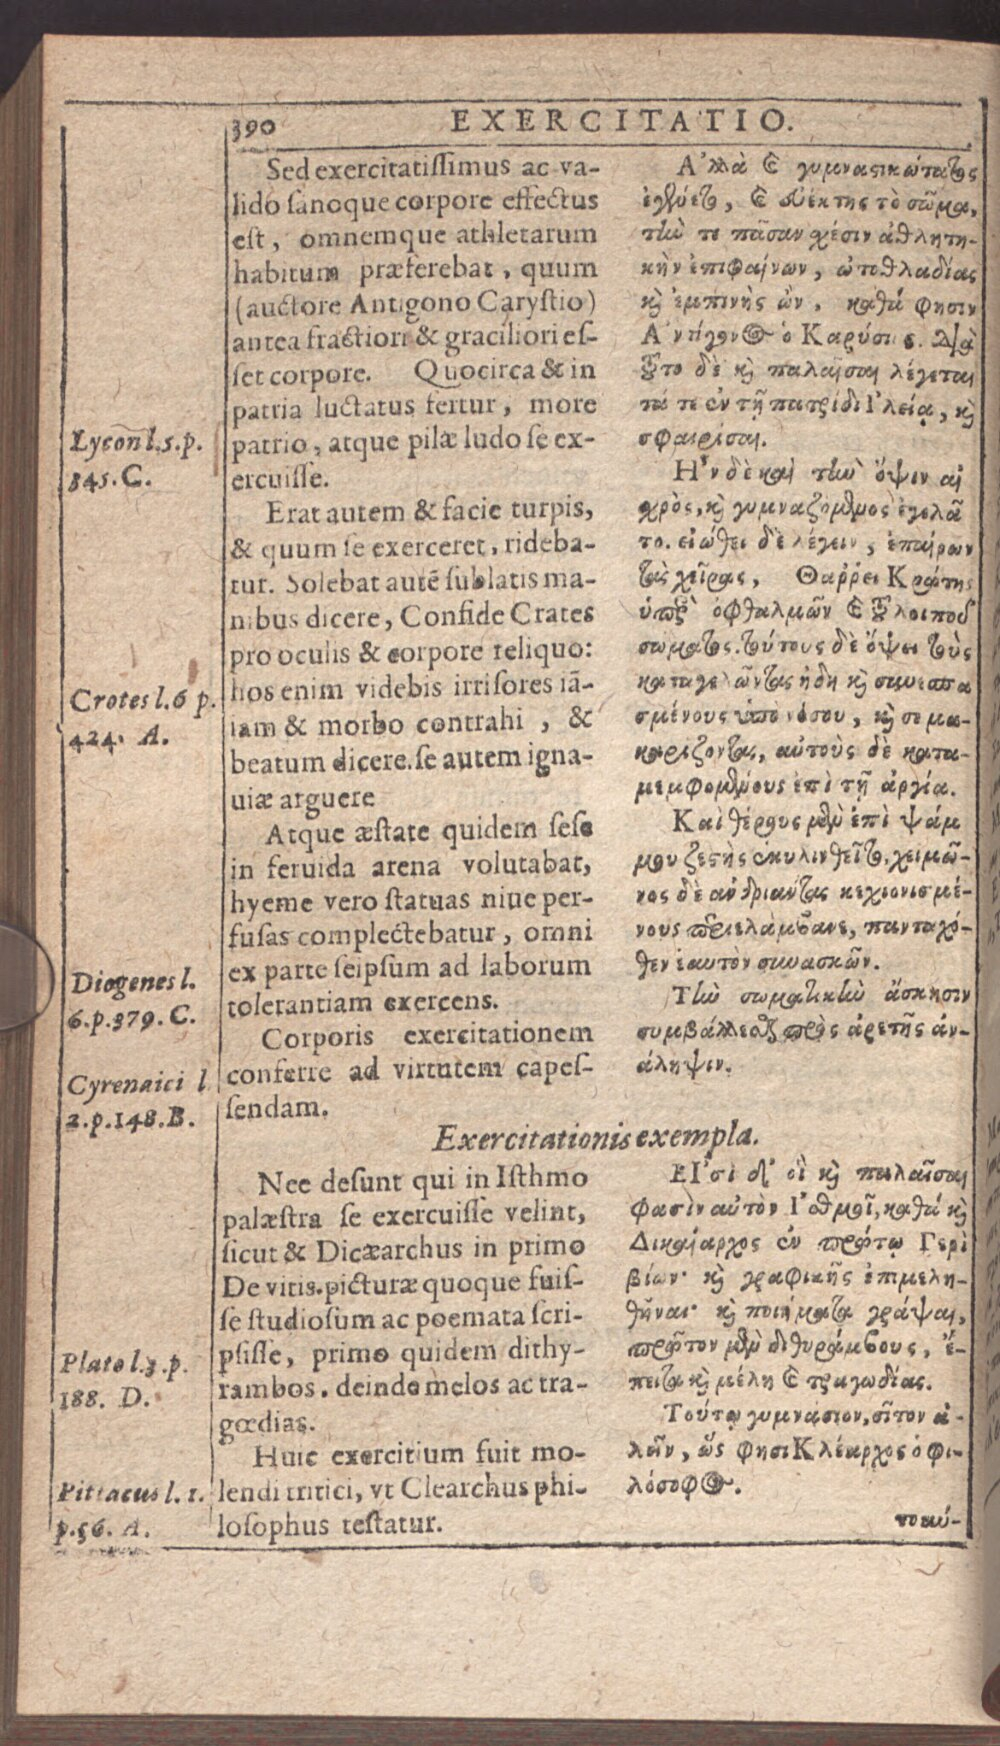 390
EXERCITATIO.
Lycon l. 5. p.
845. C.
Crotes l. 6 p.
424. A.
Diogenes l.
6. p. 379. C.
Cyrenaici l
2. p. 148. B.
Plato l. 3. p.
188. D.
Pittacus l. 1.
p. 56. A.
Sed exercitatiſſimus ac va-
lido ſanoque corpore effectus
eſt, omnemque athletarum
habitum præferebat, quum
(auctore Antigono Caryſtio)
antea fractiori & graciliori eſ-
ſet corpore. Quocirca & in
patria luctatus fertur, more
patrio, atque pilæ ludo ſe ex-
ercuiſſe.
Erat autem & facie turpis,
& quum ſe exerceret, rideba-
tur. Solebat autē ſublatis ma-
nibus dicere, Confide Crates
pro oculis & corpore reliquo:
hos enim videbis irriſores iā-
iam & morbo contrahi, &
beatum dicere. ſe autem igna-
uiæ arguere
Atque æſtate quidem ſeſe
in feruida arena volutabat,
hyeme vero ſtatuas niue per-
fuſas complectebatur, omni
ex parte ſeipſum ad laborum
tolerantiam exercens.
Corporis exercitationem
conferre ad virtutem capeſ-
ſendam.
Α᾿λλὰ καὶ γυμναστικώτατος
ἐγένετο, καὶ εὐέκτης τὸ σῶμα,
τήν τε πᾶσαν σχέσιν ἀθλητι-
κὴν ἐπιφαίνων, ὠτοθλαδίας
καὶ ἐμπινὴς ὢν, καθά φησιν
Α᾿ντίγονος ὁ Καρύστιος. διὰ
τοῦτο δὲ καὶ παλαῖσαι λέγεται
τά τε ἐν τῇ πατρίδι Ι᾿λείᾳ, καὶ
σφαιρίσαι.
Η῏ν δὲ καὶ τὴν ὄψιν αἰ
σχρὸς, καὶ γυμναζόμενος ἐγελᾶ
το. εἰώθει δὲ λέγειν, ἐπαίρων
τὰς χεῖρας, Θάῤῥει Κράτης
ὑπὲρ ὀφθαλμῶν καὶ τοῦ λοιποῦ
σώματος. τούτους δὲ ὄψει τοὺς
καταγελῶντας ἤδη καὶ συνεσπα
σμένους ὑπὸ νόσου, καὶ σε μα-
καρίζοντας, αὐτοὺς δὲ κατα-
μεμφομένους ἐπὶ τῇ ἀργίᾳ.
Καὶ θέρους μὲν ἐπὶ ψάμ
μου ζεστῆς ἐκυλινδεῖτο, χειμῶ-
νος δὲ ἀνδριάντας κεχιονισμέ-
νους περιελάμβανε, πανταχό-
θεν ἑαυτὸν συνασκῶν.
Τὴν σωματικὴν ἄσκησιν
συμβάλλεσθαι πρὸς ἀρετῆς ἀν-
άληψιν.
Exercitationis exempla.
Nec deſunt qui in Iſthmo
palæſtra ſe exercuiſſe velint,
ſicut & Dicæarchus in primo
De vitis. picturæ quoque fuiſ-
ſe ſtudioſum ac poemata ſcri-
pſiſſe, primo quidem dithy-
rambos, deinde melos ac tra-
gœdias.
Huic exercitium fuit mo-
lendi tritici, vt Clearchus phi-
loſophus teſtatur.
ΕΙ᾿σὶ δ᾿ οἳ καὶ παλαῖσαι
φασὶν αὐτὸν Ι᾿σθμοῖ, καθά καὶ
Δικαίαρχος ἐν πρώτῳ Περὶ
βίων· καὶ γραφικῆς ἐπιμελη-
θῆναι· καὶ ποιήματα γράψαι,
πρῶτον μὲν διθυράμβους, ἔ-
πειτα καὶ μέλη καὶ τραγῳδίας.
Τούτῳ γυμνάσιον, σῖτον ἀ-
λεῖν, ὥς φησι Κλέαρχος ὁ φι-
λόσοφος.